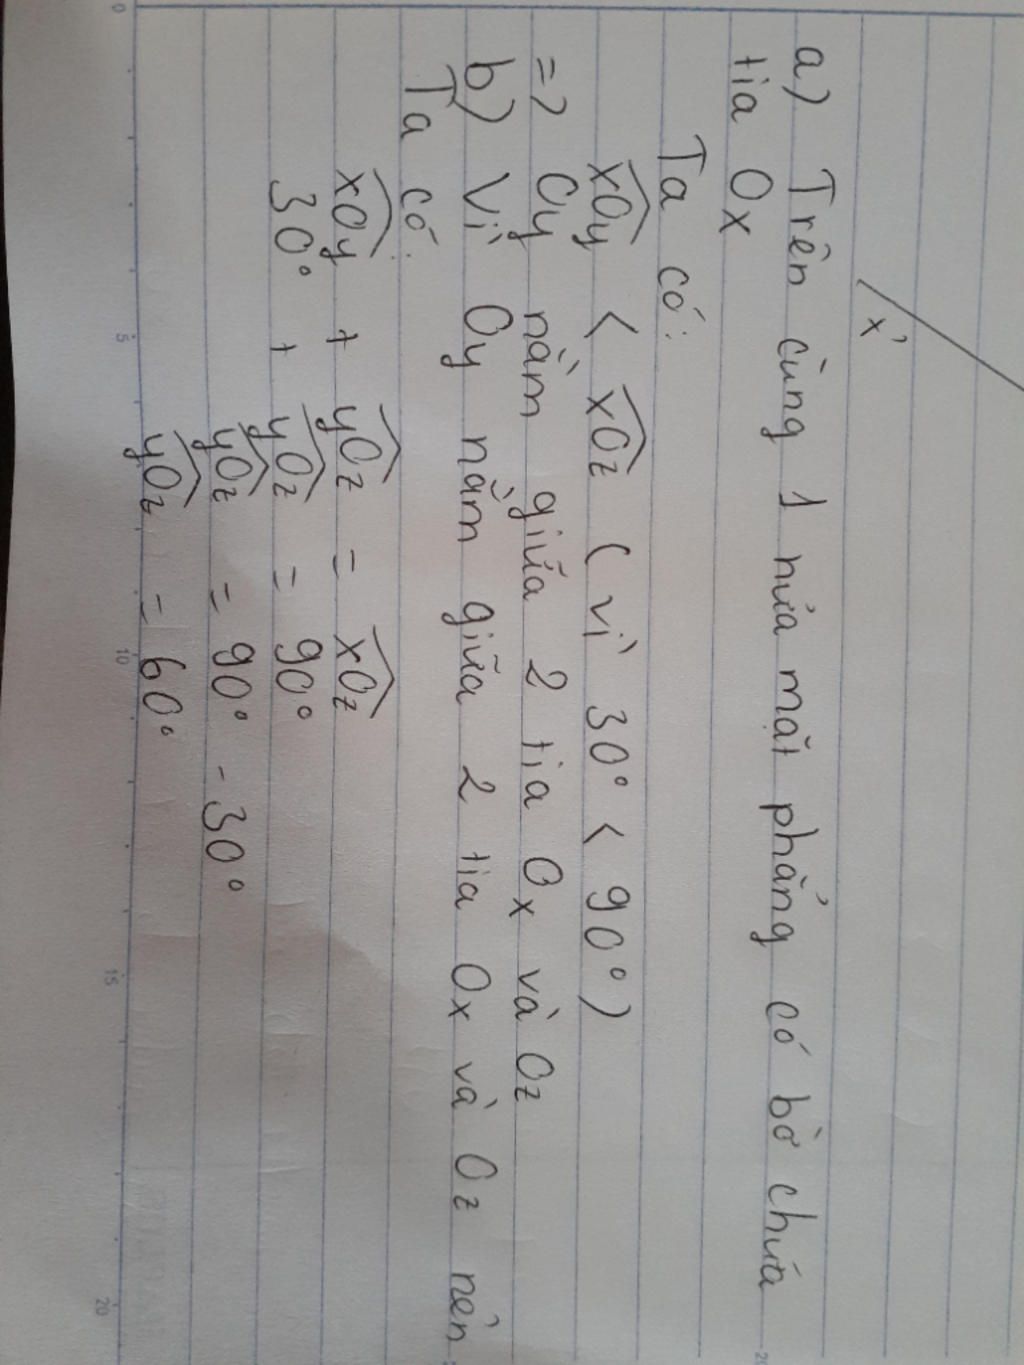 x'
a) Trên cùng 1 nửa mặt phẳng có bờ chứa
tia Ox
Ta có:
xOy < xOz ( vì 30° < 90° )
=> Oy nằm giữa 2 tia Ox và Oz
b) Vì Oy nằm giữa 2 tia Ox và Oz nên
Ta có:
xOy + yOz = xOz
30° + yOz = 90°
yOz = 90° - 30°
yOz = 60°
0 5 10 15 20